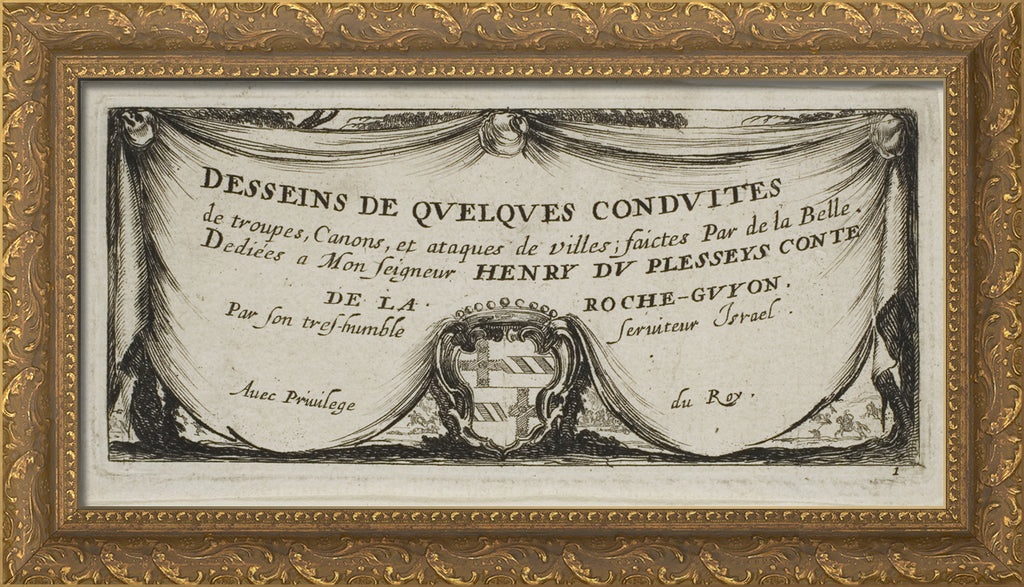 DESSEINS DE QVELQVES CONDVITES
de troupes, Canons, et ataques de villes; faictes Par de la Belle.
Dediées a Mon ſeigneur HENRY DV PLESSEYS CONTE
DE LA . ROCHE-GVYON.
Par ſon treſ-humble ſeruiteur Israel .
Auec Priuilege du Roy .
1